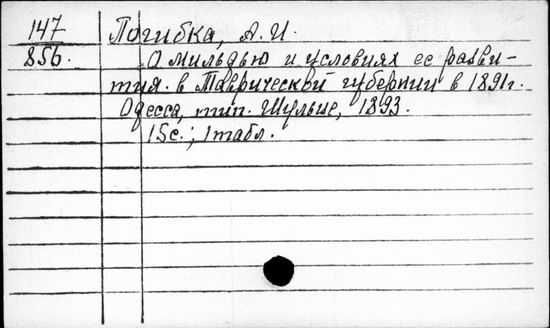 147 Погибка, А. И.
856. О мильдью и условиях ее разви-
тия в Таврической губернии в 1891 г.
Одесса, тип. Шульце, 1893.
15с.; 1 табл.